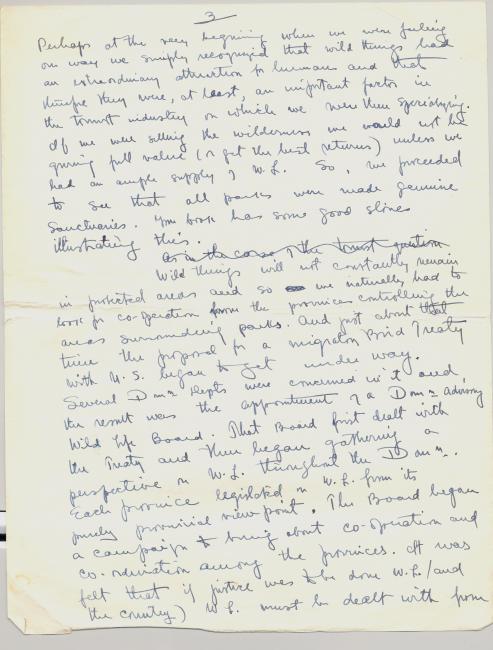 3
Perhaps at the very beginning when we were feeling
our way we simply recognized that wild things had
an extraordinary attraction for humans and that
therefore they were, at least, an important factor in
the tourist industry on which we were then specializing.
If we were selling the wilderness we would not be
giving full value (or get the best returns) unless we
had an ample supply of W.L. So, we proceeded
to see that all parks were made genuine
Sanctuaries. Your book has some good stories
illustrating this.
As in the case of the tourist question
Wild things will not constantly remain
in protected areas and so we naturally had to
look for co-operation from the provinces controlling the
areas surrounding parks. And just about that
time the proposal for a migratory Bird Treaty
with U.S. began to get under way.
Several Domn Depts were concerned in it and
the result was the appointment of a Domn advisory
Wild Life Board. That Board first dealt with
the Treaty and then began gathering a
perspective on W.L. throughout the Domn.
Each province legislated on W.L. from its
purely provincial viewpoint. The Board began
a campaign to bring about co-operation and
co-ordination among the provinces. It was
felt that if justice was to be done W.L. (and
the country) W.L. must be dealt with from